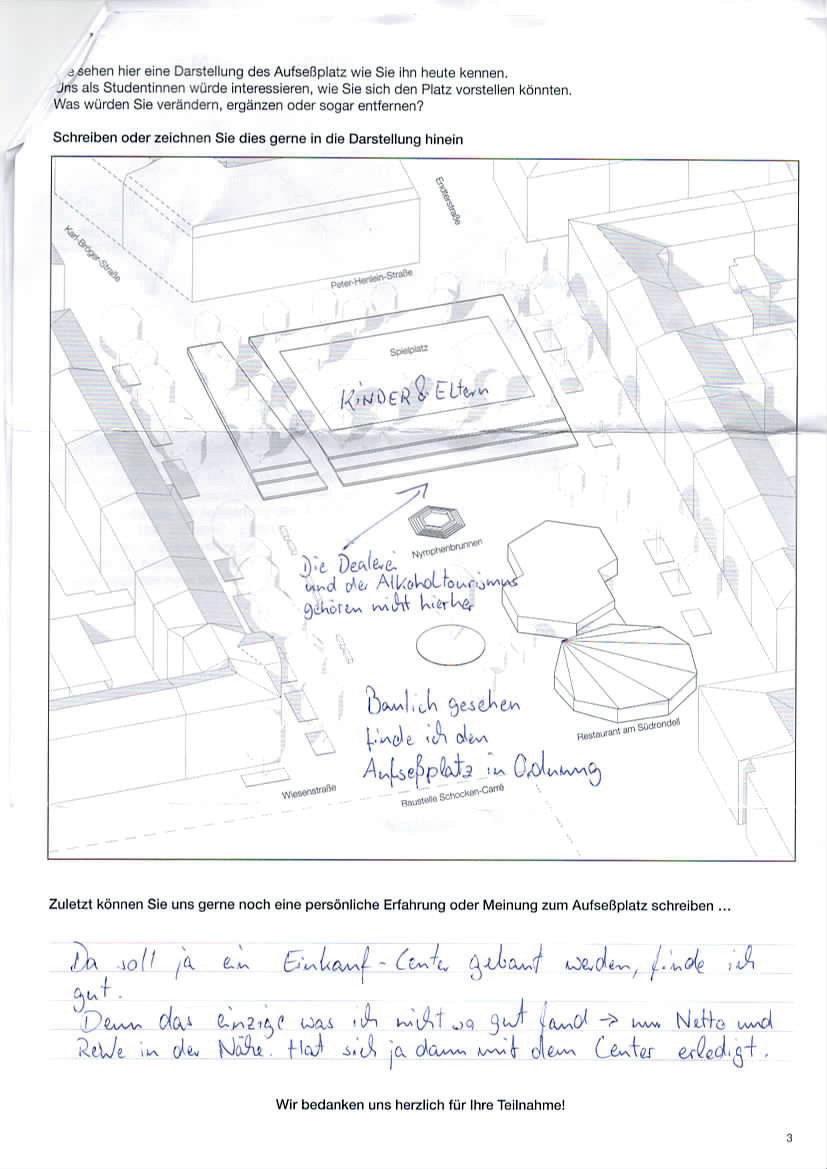 sehen hier eine Darstellung des Aufseßplatz wie Sie ihn heute kennen.
Uns als Studentinnen würde interessieren, wie Sie sich den Platz vorstellen könnten.
Was würden Sie verändern, ergänzen oder sogar entfernen?
Schreiben oder zeichnen Sie dies gerne in die Darstellung hinein
Endterstraße
Karl-Bröger-Straße
Peter-Henlein-Straße
Spielplatz
KINDER & Eltern
Nymphenbrunnen
Die Dealerei
und der Alkoholtourismus
gehören nicht hierher
Baulich gesehen
finde ich den
Aufseßplatz in Ordnung
Restaurant am Südrondell
Wiesenstraße
Baustelle Schocken-Carré
Zuletzt können Sie uns gerne noch eine persönliche Erfahrung oder Meinung zum Aufseßplatz schreiben ...
Da soll ja ein Einkauf-Center gebaut werden, finde ich
gut.
Denn das einzige was ich nicht so gut fand → nur Netto und
ReWe in der Nähe. Hat sich ja dann mit dem Center erledigt.
Wir bedanken uns herzlich für Ihre Teilnahme!
3